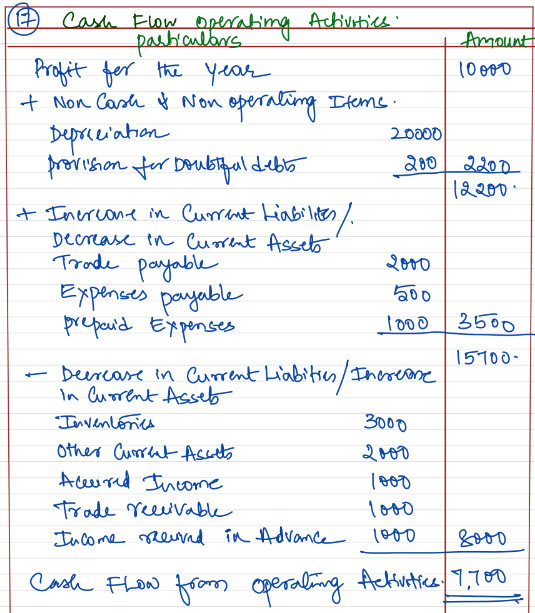 17 Cash Flow operating Activities.
particulars Amount
Profit for the year 10000
+ Non Cash & Non operating Items.
Depreciation 20000
provision for Doubtful debts 200 2200
12200.
+ Increase in Current Liabilities/
Decrease in Current Assets
Trade payable 2000
Expenses payable 500
prepaid Expenses 1000 3500
15700.
- Decrease in Current Liabilities/Increase
in Current Assets
Inventories 3000
Other Current Assets 2000
Accured Income 1000
Trade receivable 1000
Income received in Advance 1000 8000
Cash Flow from operating Activities. 7,700